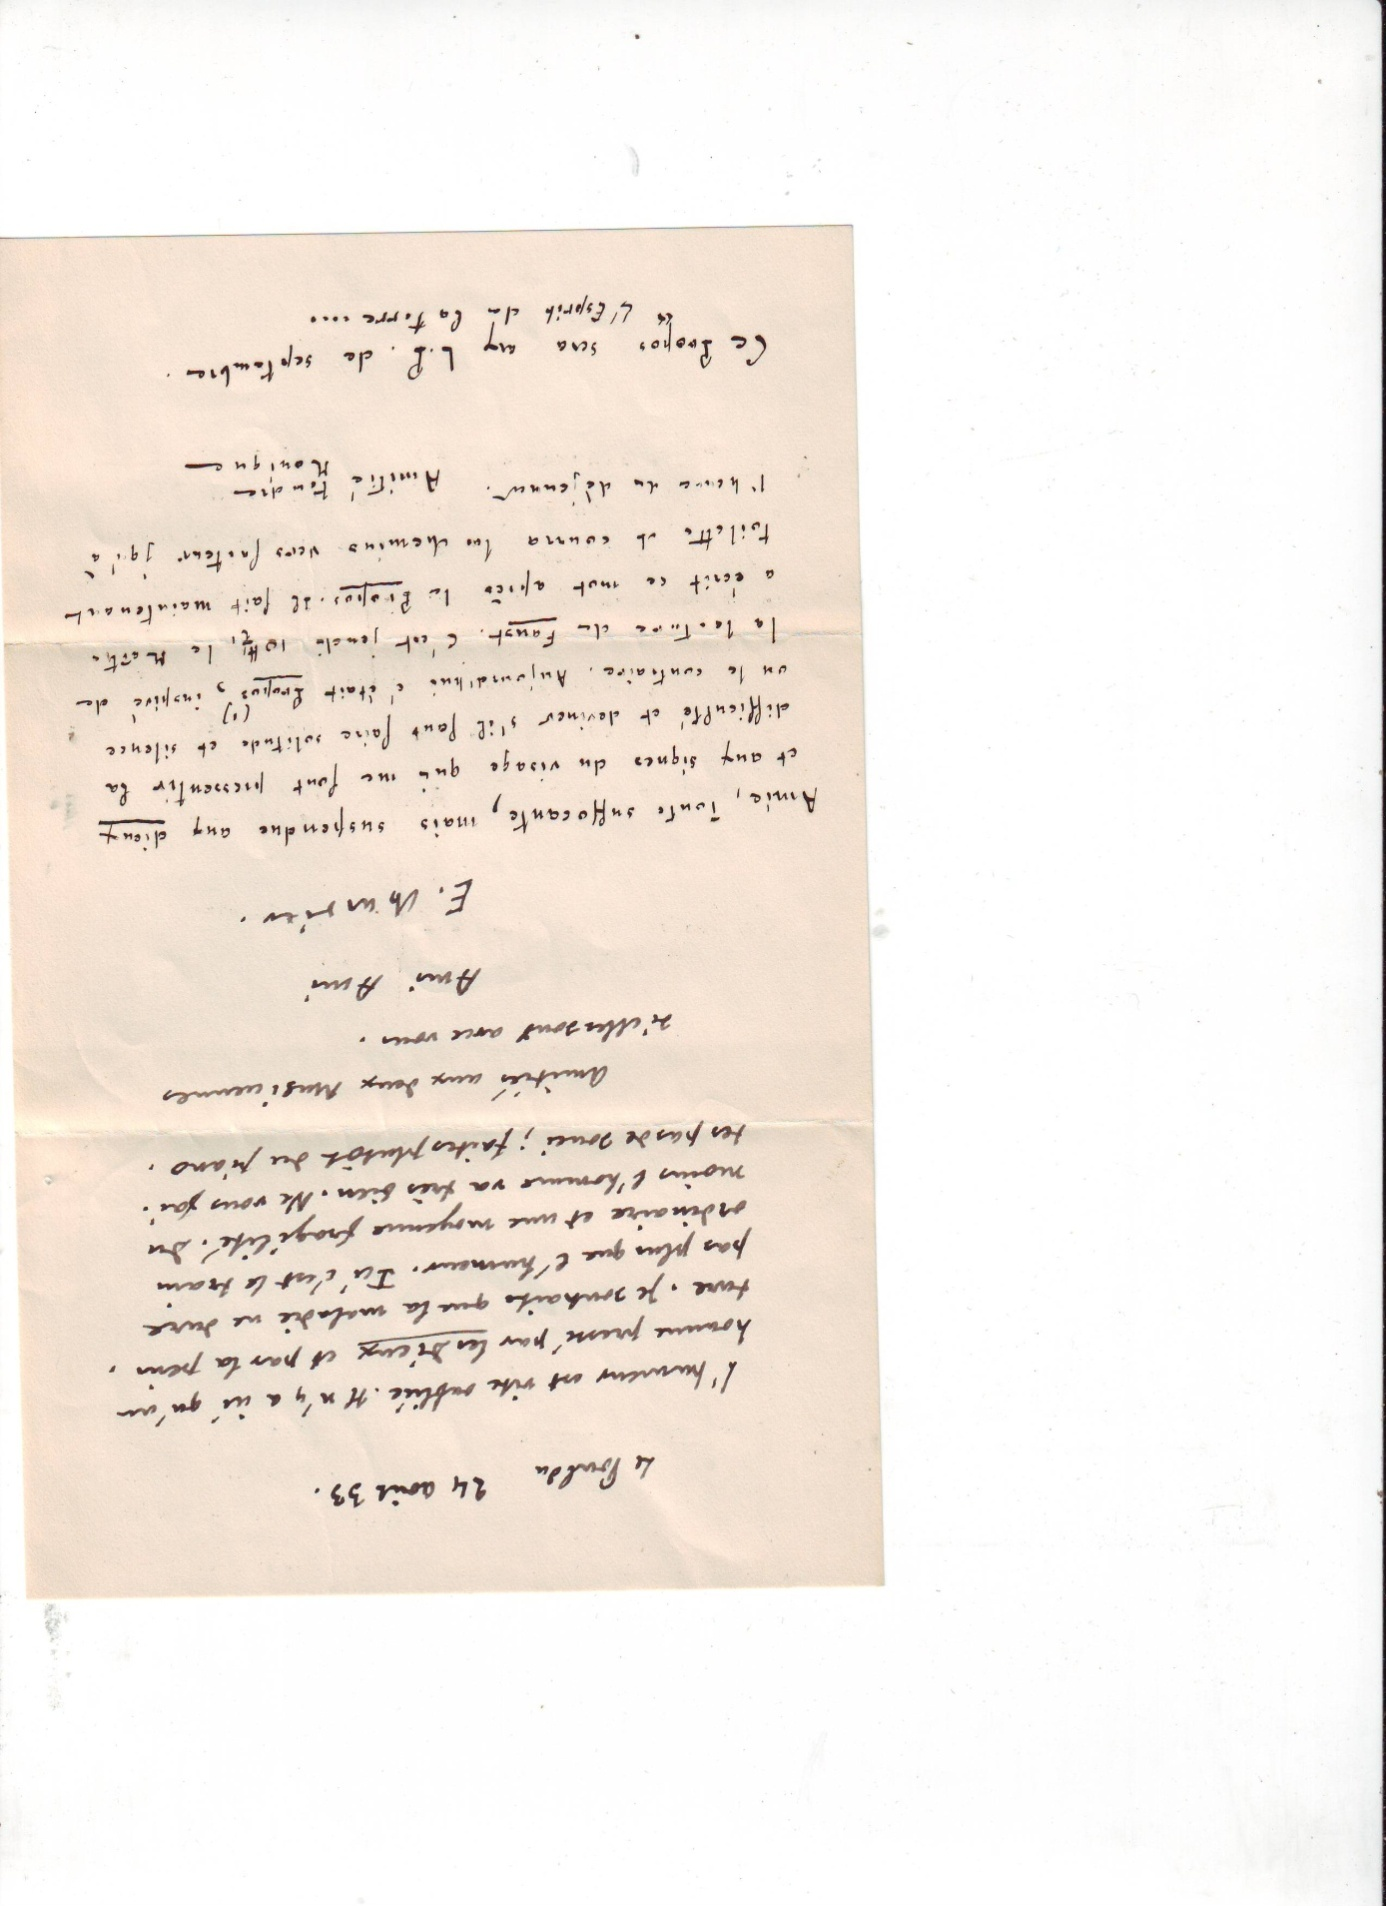 Le Pouldu 24 août 33.
L'humeur est vite oubliée. Il n'y a ici qu'un
homme pressé par les Dieux et par la pein.
ture. Je souhaite que la maladie ne dure
pas plus que l'humeur. Ici c'est le train
ordinaire et une moyenne fragilité. Du
moins l'homme va très bien. Ne vous fai.
tes pas de souci ; faites plutôt du piano.
Amitiés aux deux Musiciennes
si elles sont avec vous.
Ami Ami
E. Chartier.
Amie, Toute suffocante, mais suspendue aux dieux
et aux signes du visage qui me font pressentir la
difficulté et deviner s'il faut faire solitude et silence
ou le contraire. Aujourd'hui c'était Propos(1), inspiré de
la lecture de Faust. C'est jeudi 10H ½, le Maître
a écrit ce mot après le Propos. Il fait maintenant
toilette et courra les chemins vers facteur jqu'à
l'heure du déjeuner. Amitié tendre
Monique
Ce Propos sera aux L.P. de septembre.
cs L'Esprit de la terre....